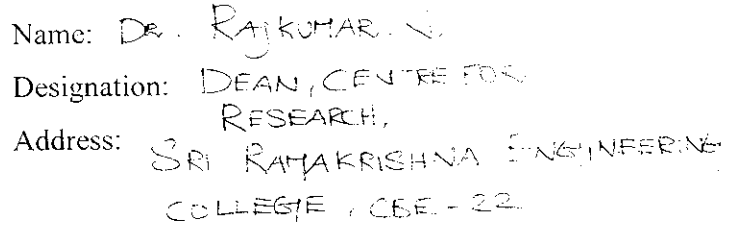 Name: DR. RAJKUMAR. N.
Designation: DEAN, CENTRE FOR
RESEARCH,
Address:
SRI RAMAKRISHNA ENGINEERING
COLLEGE, CBE-22